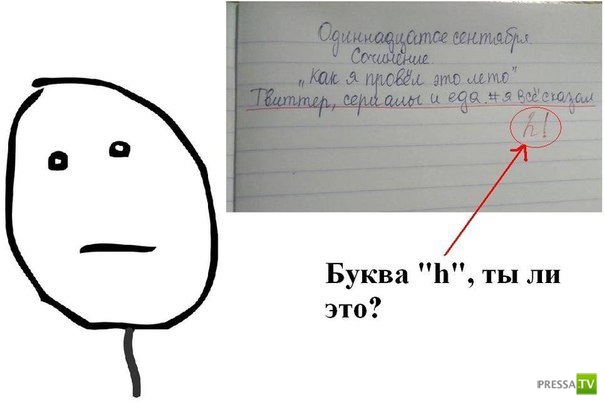 Одиннадцатое сентября
Сочинение
„Как я провёл это лето"
Твиттер, сериалы и еда. #я всё сказал
h!
Буква "h", ты ли
это?
PRESSA.TV